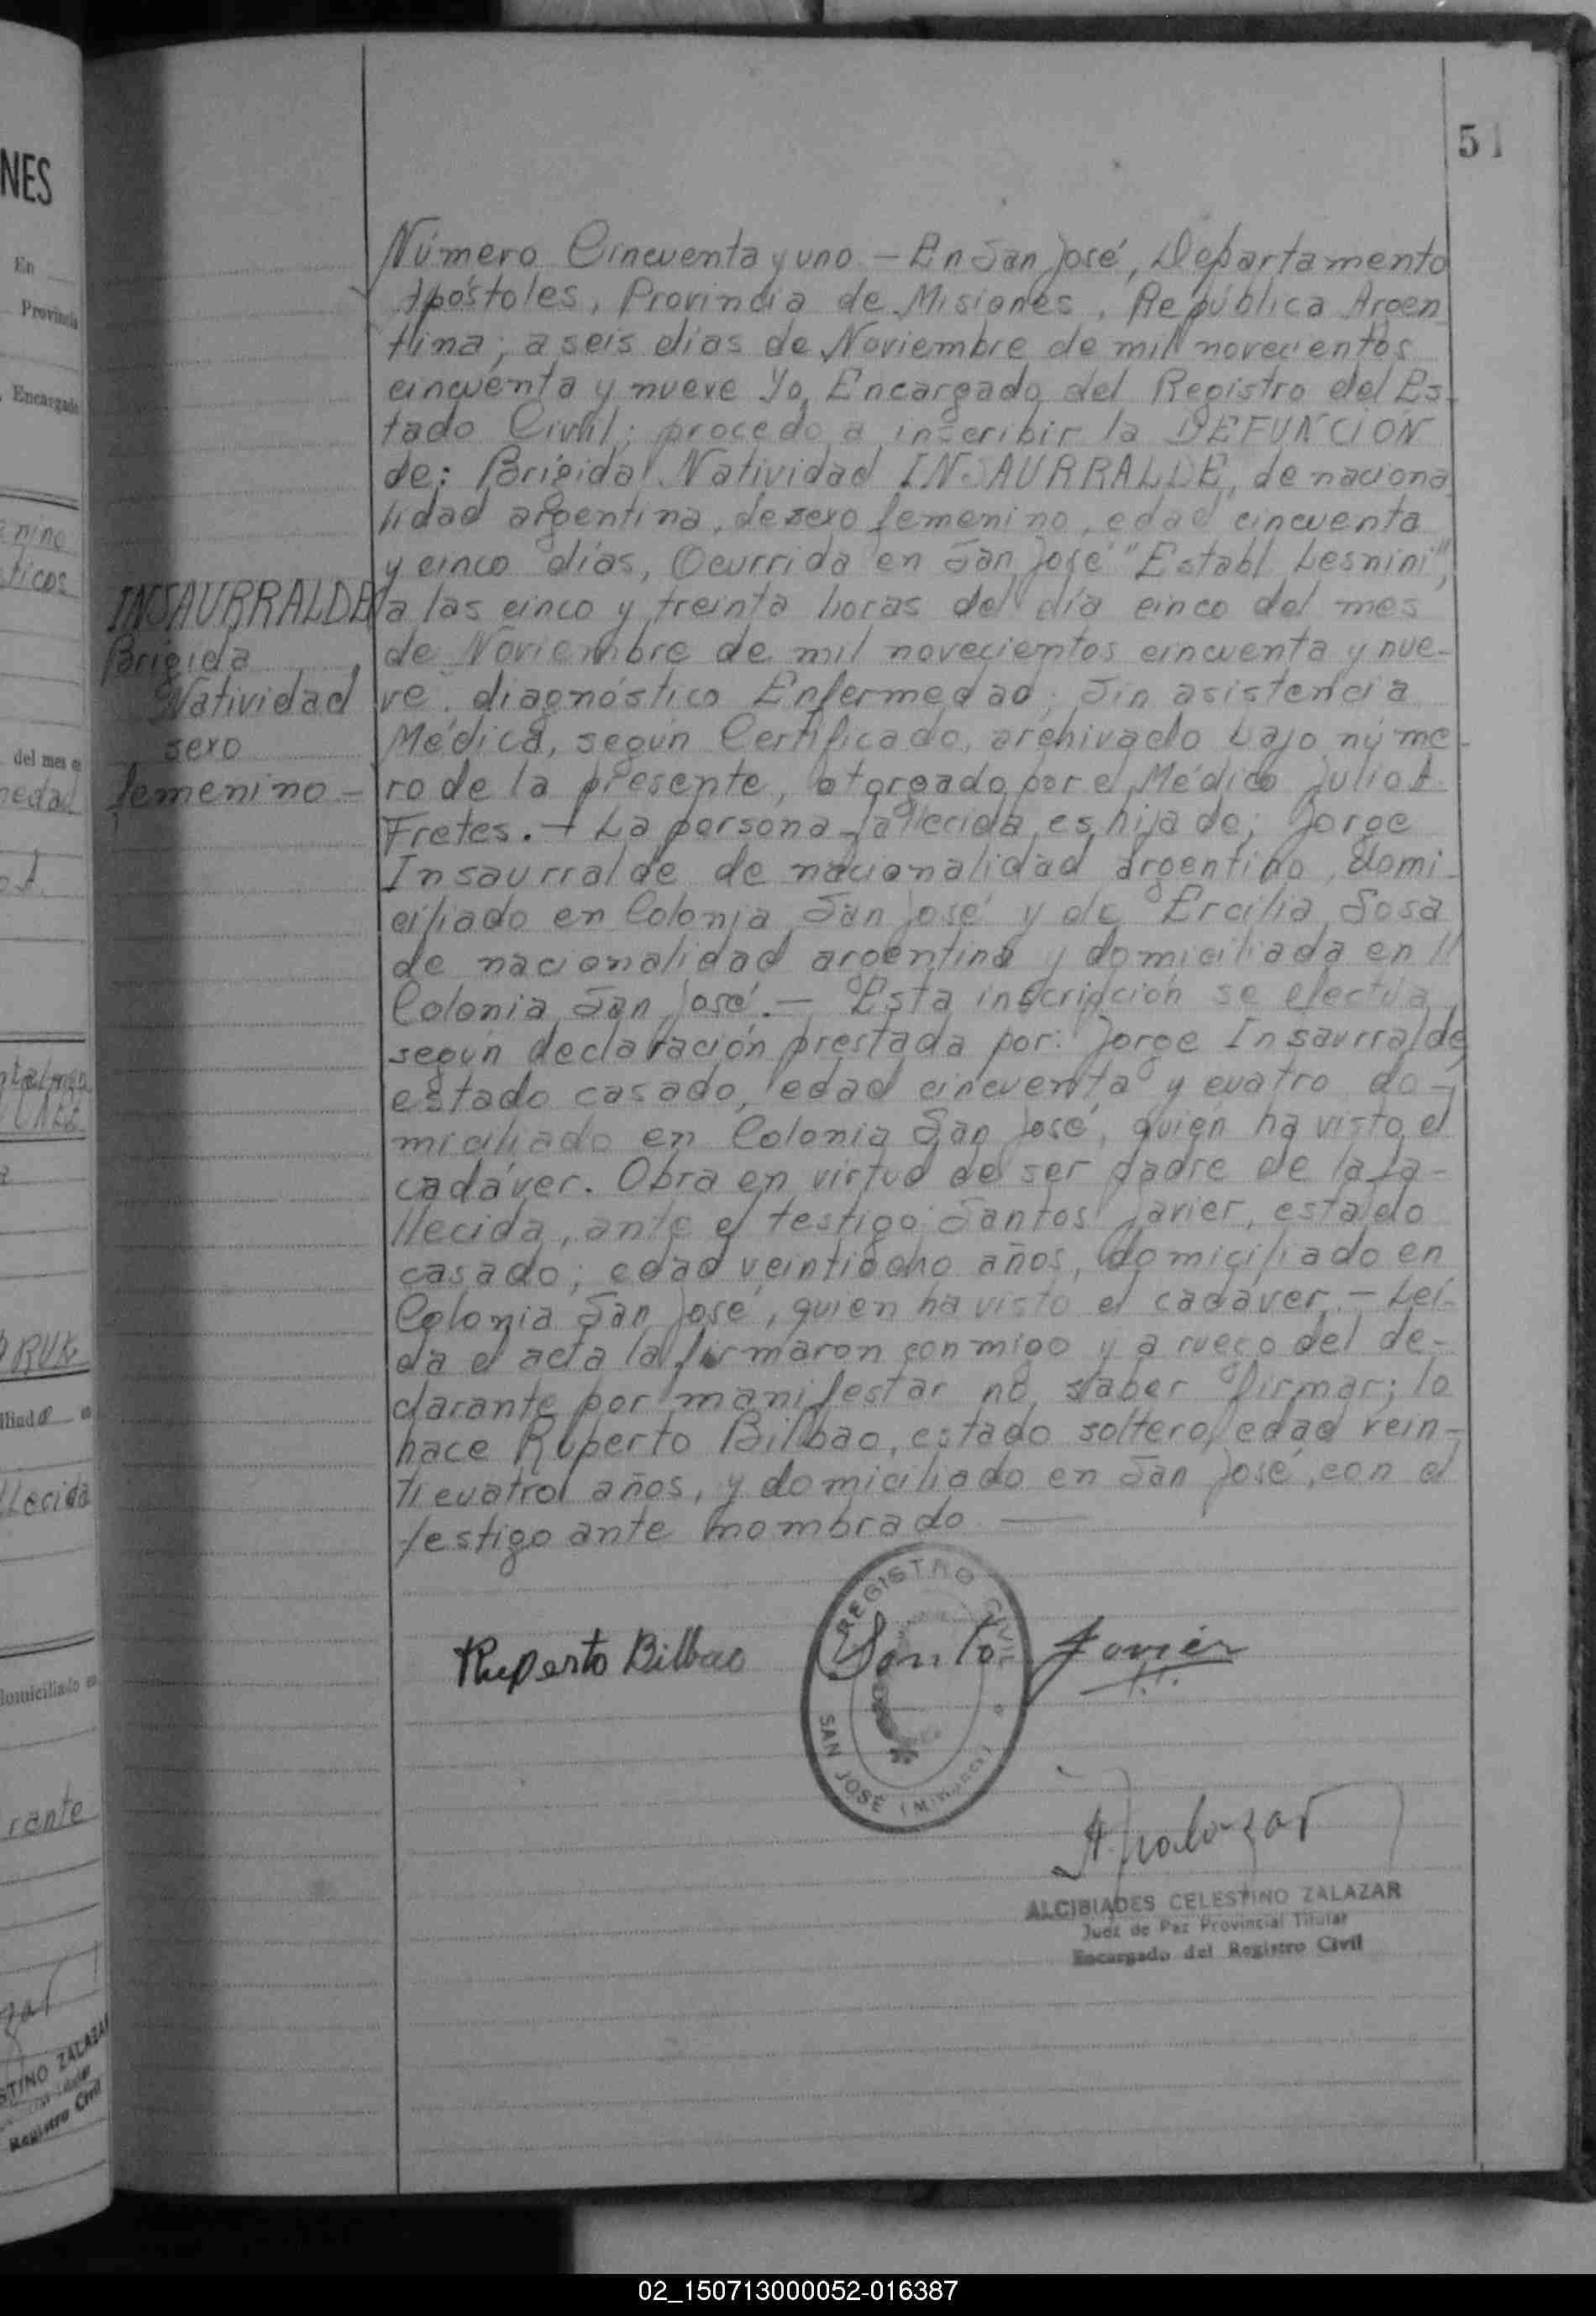 NES
En
Provincia
Encargado
nino
ticos
del mes
RUK
llecida
domiciliado
rante
zar
STINO ZALAZAR
Registro Civil
51
INSAURRALDE
Brigida
Natividad
sexo
femenino -
Número Cincuenta y uno - En San José, Departamento
Apóstoles, Provincia de Misiones, República Argen
tina, a seis días de Noviembre de mil novecientos
cincuenta y nueve Yo, Encargado del Registro del Es-
tado Civil; procedo a inscribir la DEFUNCIÓN
de: Brígida Natividad INSAURRALDE, de naciona
lidad argentina, de sexo femenino, edad cincuenta
y cinco días, Ocurrida en San José "Establ. Lesnini",
a las cinco y treinta horas del día cinco del mes
de Noviembre de mil novecientos cincuenta y nue-
ve. diagnóstico Enfermedad; Sin asistencia
Médica, según Certificado, archivado bajo núme-
ro de la presente, otorgado por el Médico Julio A.
Fretes. - La persona fallecida, es hija de; Jorge
Insaurralde de nacionalidad argentino, domi-
ciliado en Colonia San José y de Ercilia Sosa
de nacionalidad argentina y domiciliada en //
Colonia San José. - Esta inscripción se efectúa
según declaración prestada por: Jorge Insaurralde,
estado casado, edad cincuenta y cuatro do-
miciliado en Colonia San José, quién ha visto el
cadáver. Obra en virtud de ser padre de la fa-
llecida, ante el testigo: Santos Javier, estado
casado; edad veintiocho años, domiciliado en
Colonia San José, quien ha visto el cadáver. - Leí-
da el acta la firmaron conmigo y a ruego del de-
clarante por manifestar no saber firmar; lo
hace Ruperto Bilbao, estado soltero, edad vein-
ticuatro años, y domiciliado en San José, con el
testigo ante nombrado
Ruperto Bilbao Santo Javier
REGISTRO CIVIL
SAN JOSÉ (Misiones)
A. Zalazar
ALCIBIADES CELESTINO ZALAZAR
Juez de Paz Provincial Titular
Encargado del Registro Civil
02_150713000052-016387